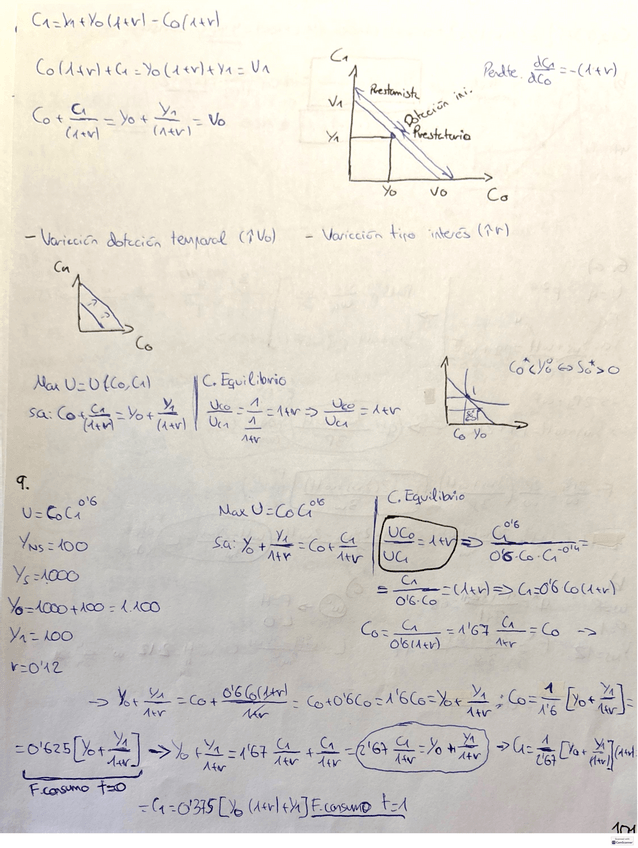 C1=Y1+Y0(1+r)-C0(1+r)
C0(1+r)+C1=Y0(1+r)+Y1=V1
C0+C1/(1+r)=Y0+Y1/(1+r)=V0
C1
V1
Y1
Prestamista
Dotación ini.
Prestatario
Y0
V0
C0
Pendte. dC1/dC0=-(1+r)
- Variación dotación temporal (↑V0)
- Variación tipo interés (↑r)
C1
C0
Max U=U(C0,C1)
s.a: C0+C1/(1+r)=Y0+Y1/(1+r)
C. Equilibrio
UC0/UC1=1/(1/(1+r))=1+r⇒UC0/UC1=1+r
C0 Y0
C0*<Y0⇔S0*>0
9.
U=C0C1^0'6
YNS=100
YS=1000
Y0=1000+100=1.100
Y1=100
r=0'12
Max U=C0C1^0'6
s.a: Y0+Y1/(1+r)=C0+C1/(1+r)
C. Equilibrio
UC0/UC1=1+r⇒C1^0'6/(0'6·C0·C1^-0'4)=
=C1/(0'6·C0)=(1+r)⇒C1=0'6C0(1+r)
C0=C1/(0'6(1+r))=1'67 C1/(1+r)=C0 →
→ Y0+Y1/(1+r)=C0+0'6C0(1+r)/(1+r)=C0+0'6C0=1'6C0=Y0+Y1/(1+r); C0=1/1'6[Y0+Y1/(1+r)]=
=0'625[Y0+Y1/(1+r)]→Y0+Y1/(1+r)=1'67 C1/(1+r)+C1/(1+r)=2'67 C1/(1+r)=Y0+Y1/(1+r)→C1=1/2'67[Y0+Y1/(1+r)](1+r)
F.consumo t=0
=C1=0'375[Y0(1+r)+Y1] F.consumo t=1
101